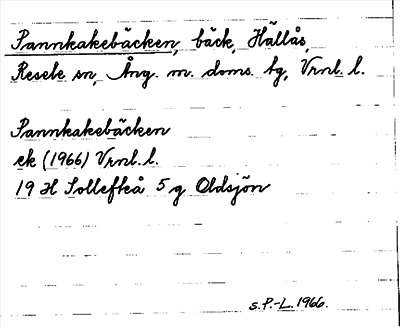 Pannkakebäcken, bäck, Hällås,
Resele sn, Ång. m. doms. tg, Vrnl. l.
Pannkakebäcken
ek (1966) Vrnl. l.
19 H Sollefteå 5 g Oldsjön
S.P.-L. 1966.